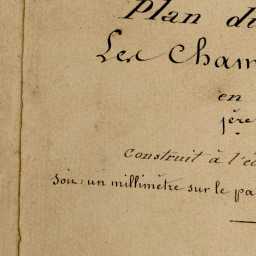 Plan du
Les Cham
en
1ère
Construit à l'é
Soit: un millimètre sur le pa